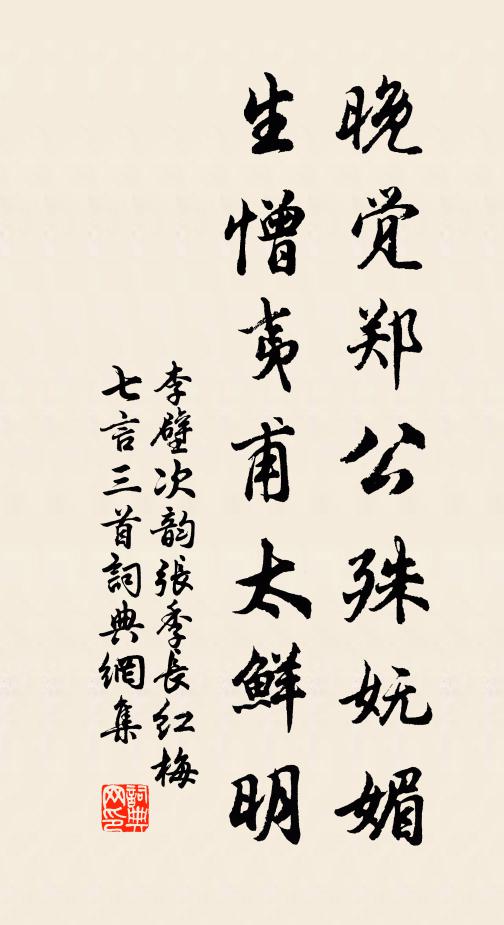 晚觉郑公殊妩媚
生憎夷甫太鲜明
李壁次韵張季长红梅
七言三首詞典網集
詞典
网印